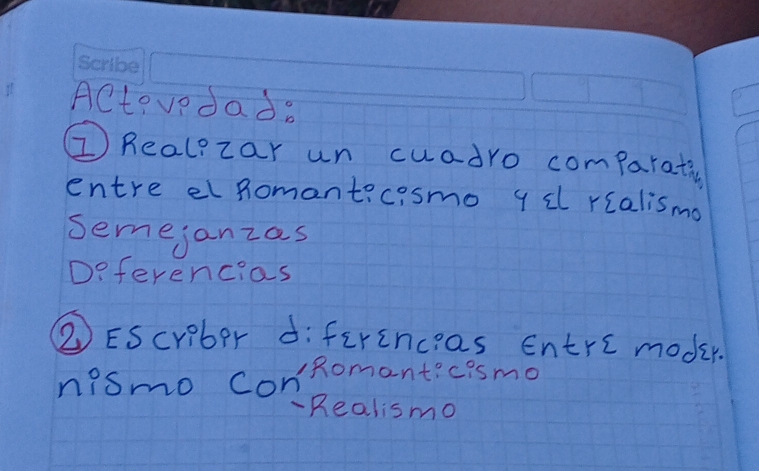 Scribe
Actividad:
① Realizar un cuadro comparativo
entre el Romanticismo y El realismo
Semejanzas
Diferencias
② Escribir diferencias Entre moder-
nismo con -Romanticismo
-Realismo